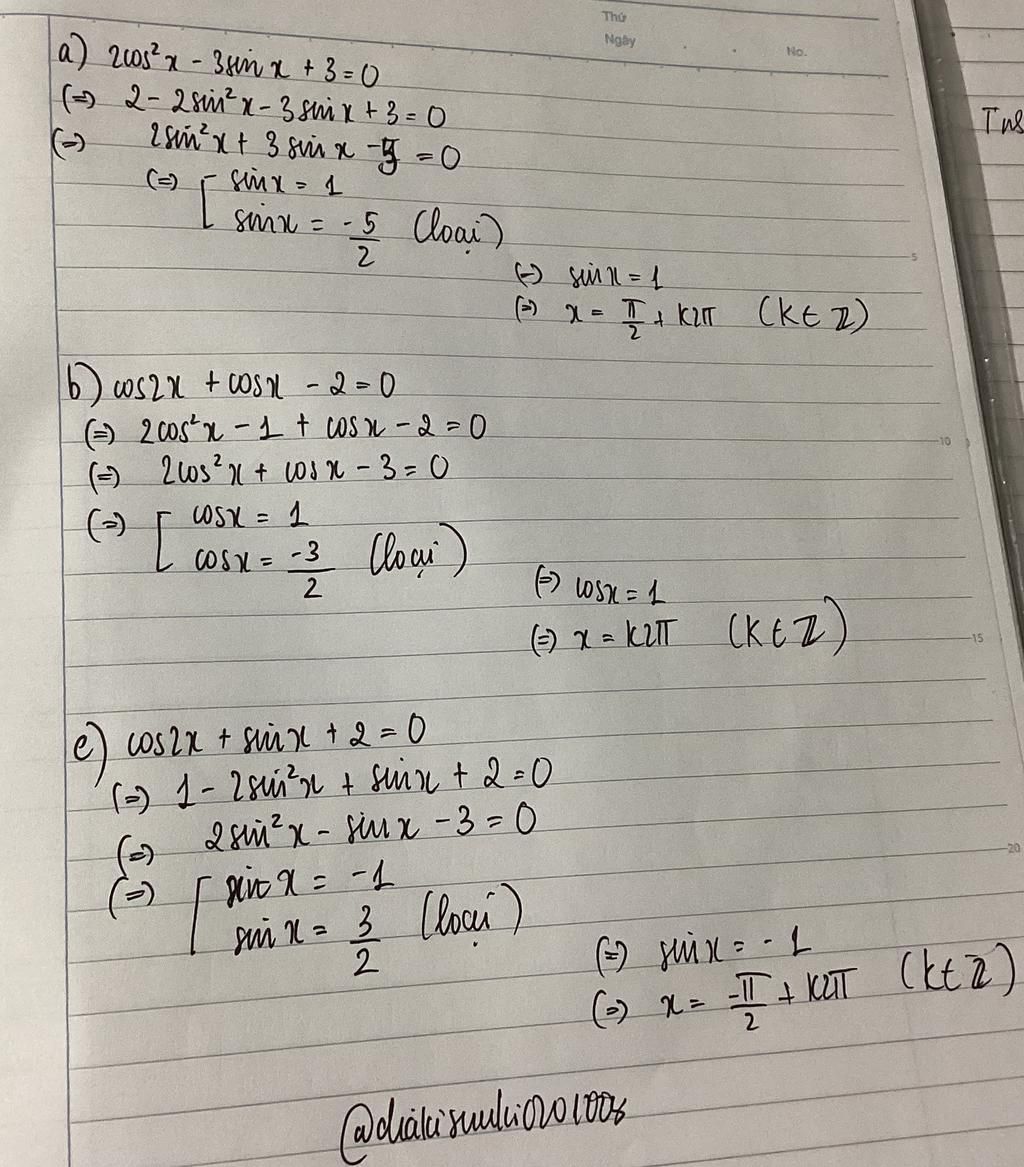 Thứ
Ngày
No.
a) 2cos²x - 3sinx + 3 = 0
(=) 2 - 2sin²x - 3sinx + 3 = 0
(=) 2sin²x + 3sinx - 5 = 0
(=) [ sinx = 1
sinx = -5/2 (loại)
(=) sinx = 1
(=) x = π/2 + k2π (k ∈ Z)
b) cos2x + cosx - 2 = 0
(=) 2cos²x - 1 + cosx - 2 = 0
(=) 2cos²x + cosx - 3 = 0
(=) [ cosx = 1
cosx = -3/2 (loại)
(=) cosx = 1
(=) x = k2π (k ∈ Z)
e) cos2x + sinx + 2 = 0
(=) 1 - 2sin²x + sinx + 2 = 0
(=) 2sin²x - sinx - 3 = 0
(=) [ sinx = -1
sinx = 3/2 (loại)
(=) sinx = -1
(=) x = -π/2 + k2π (k ∈ Z)
5
10
15
20